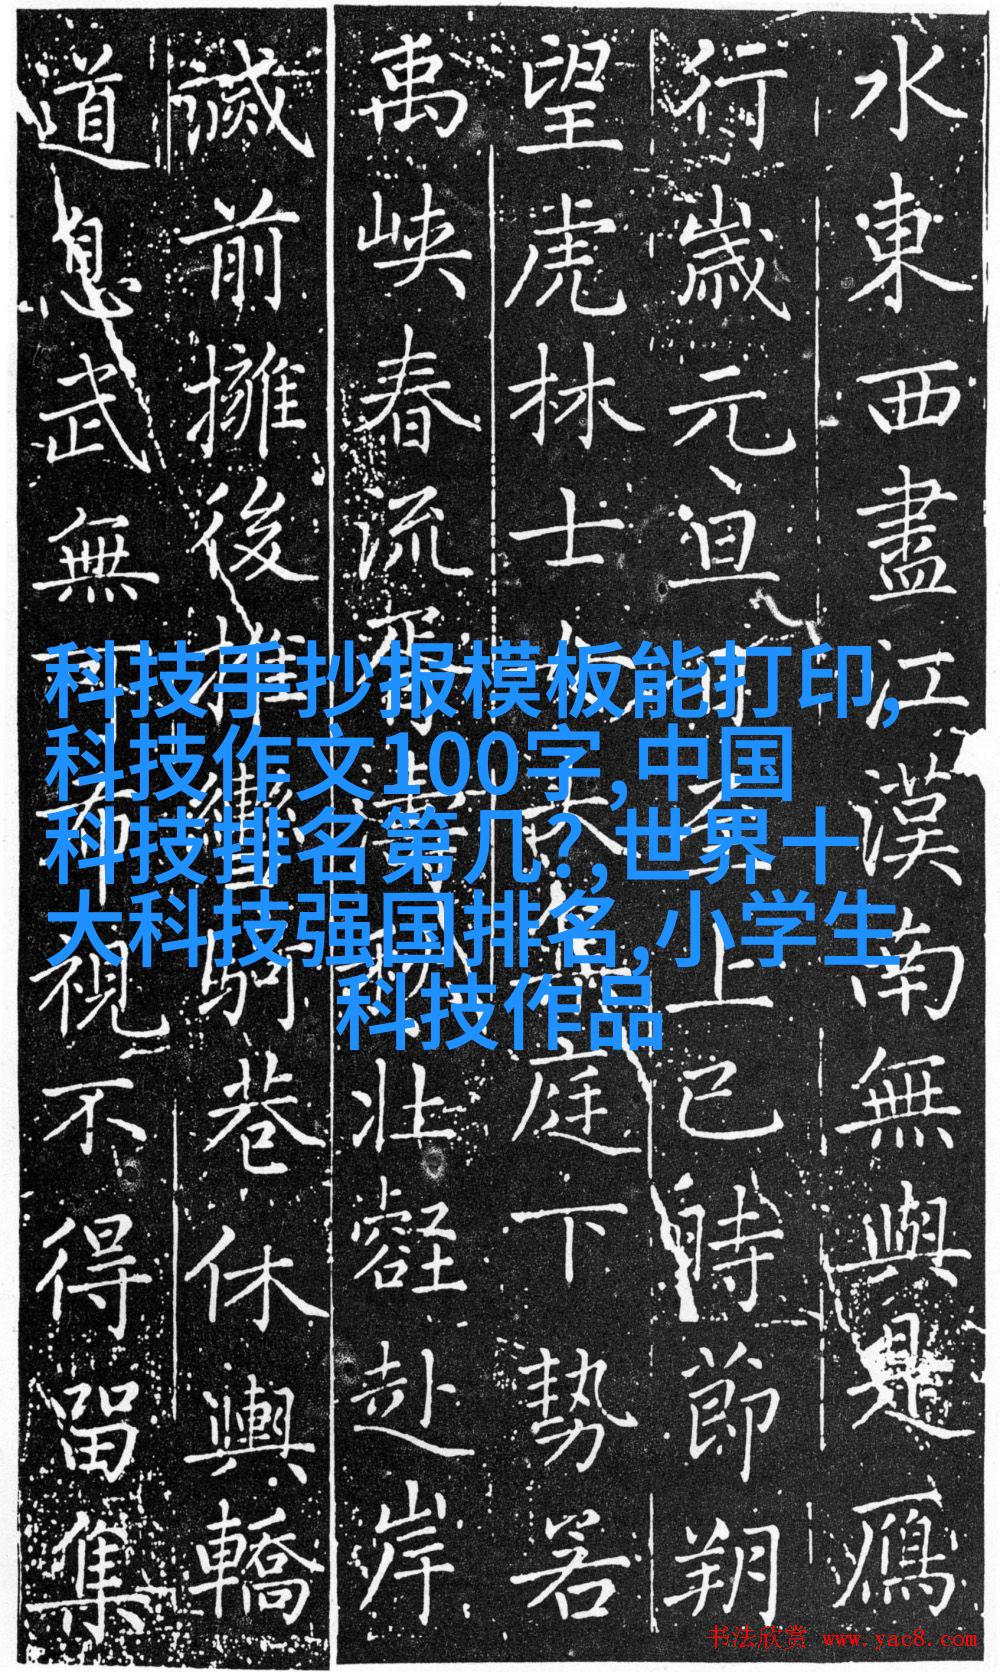 科技手抄报模板能打印,
科技作文100字,中国
科技排名第几?,世界十
大科技强国排名,小学生
科技作品
水東西盡江漢南無與是鴈
行歲元旦上巳時節朔
望虎林士女庭下勢若
禹峽春流壯壑赴岸
前擁後駒巷休輿轎
道息武無視不得留集
书法欣赏 www.yac8.com